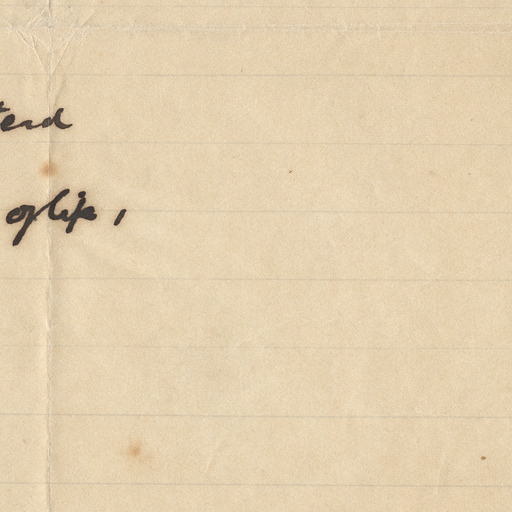 tend
of life,